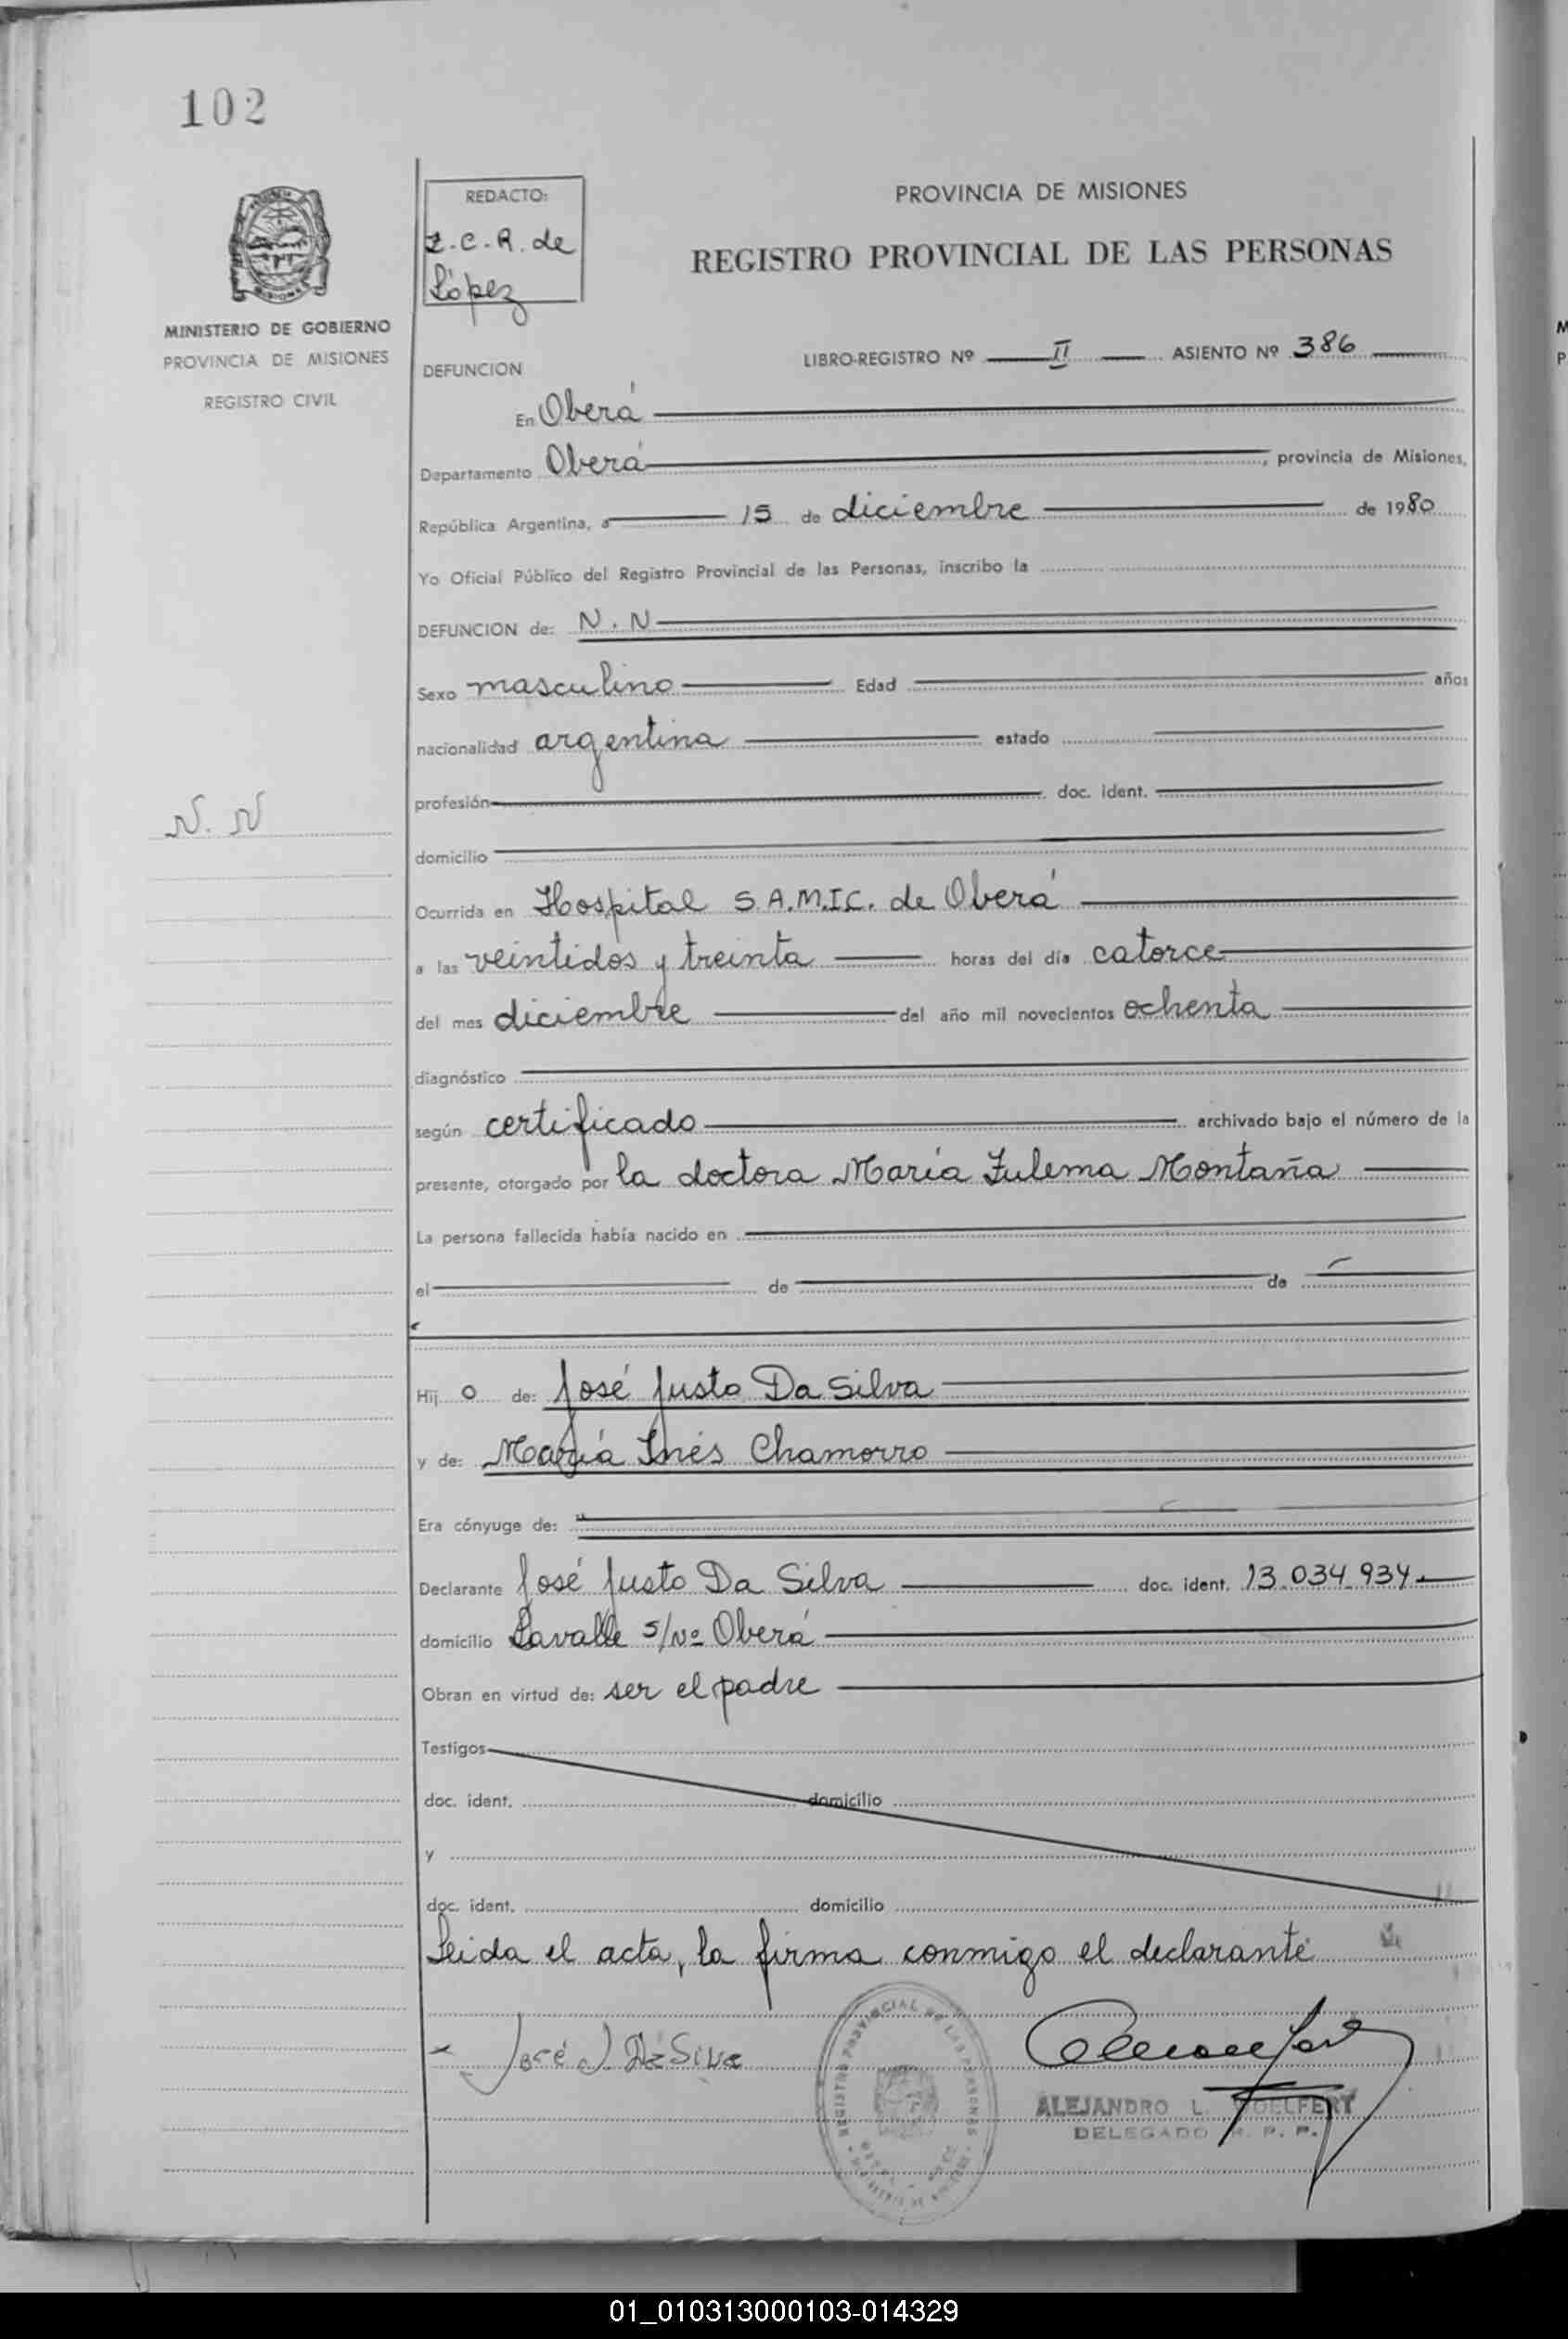 102
REDACTO:
Z.C.R. de
López
PROVINCIA DE MISIONES
REGISTRO PROVINCIAL DE LAS PERSONAS
MINISTERIO DE GOBIERNO
PROVINCIA DE MISIONES
REGISTRO CIVIL
DEFUNCION
LIBRO-REGISTRO Nº II ASIENTO Nº 386
En Oberá
Departamento Oberá, provincia de Misiones,
República Argentina, a 15 de diciembre de 1980
Yo Oficial Público del Registro Provincial de las Personas, inscribo la
DEFUNCION de: N.N
Sexo masculino Edad años
nacionalidad argentina estado
profesión doc. ident.
N.N
domicilio
Ocurrida en Hospital S.A.M.I.C. de Oberá
a las veintidos y treinta horas del día catorce
del mes diciembre del año mil novecientos ochenta
diagnóstico
según certificado archivado bajo el número de la
presente, otorgado por la doctora María Zulema Montaña
La persona fallecida había nacido en
el de de
Hij o de: José Justo Da Silva
y de: María Inés Chamorro
Era cónyuge de:
Declarante José Justo Da Silva doc. ident. 13.034.934.
domicilio Lavalle s/Nº Oberá
Obran en virtud de: ser el padre
Testigos
doc. ident. domicilio
y
doc. ident. domicilio
Leida el acta, la firma conmigo el declarante
José J. Da Silva
REGISTRO PROVINCIAL DE LAS PERSONAS
ALEJANDRO L.
DELEGADO R. P. P.
01_010313000103-014329